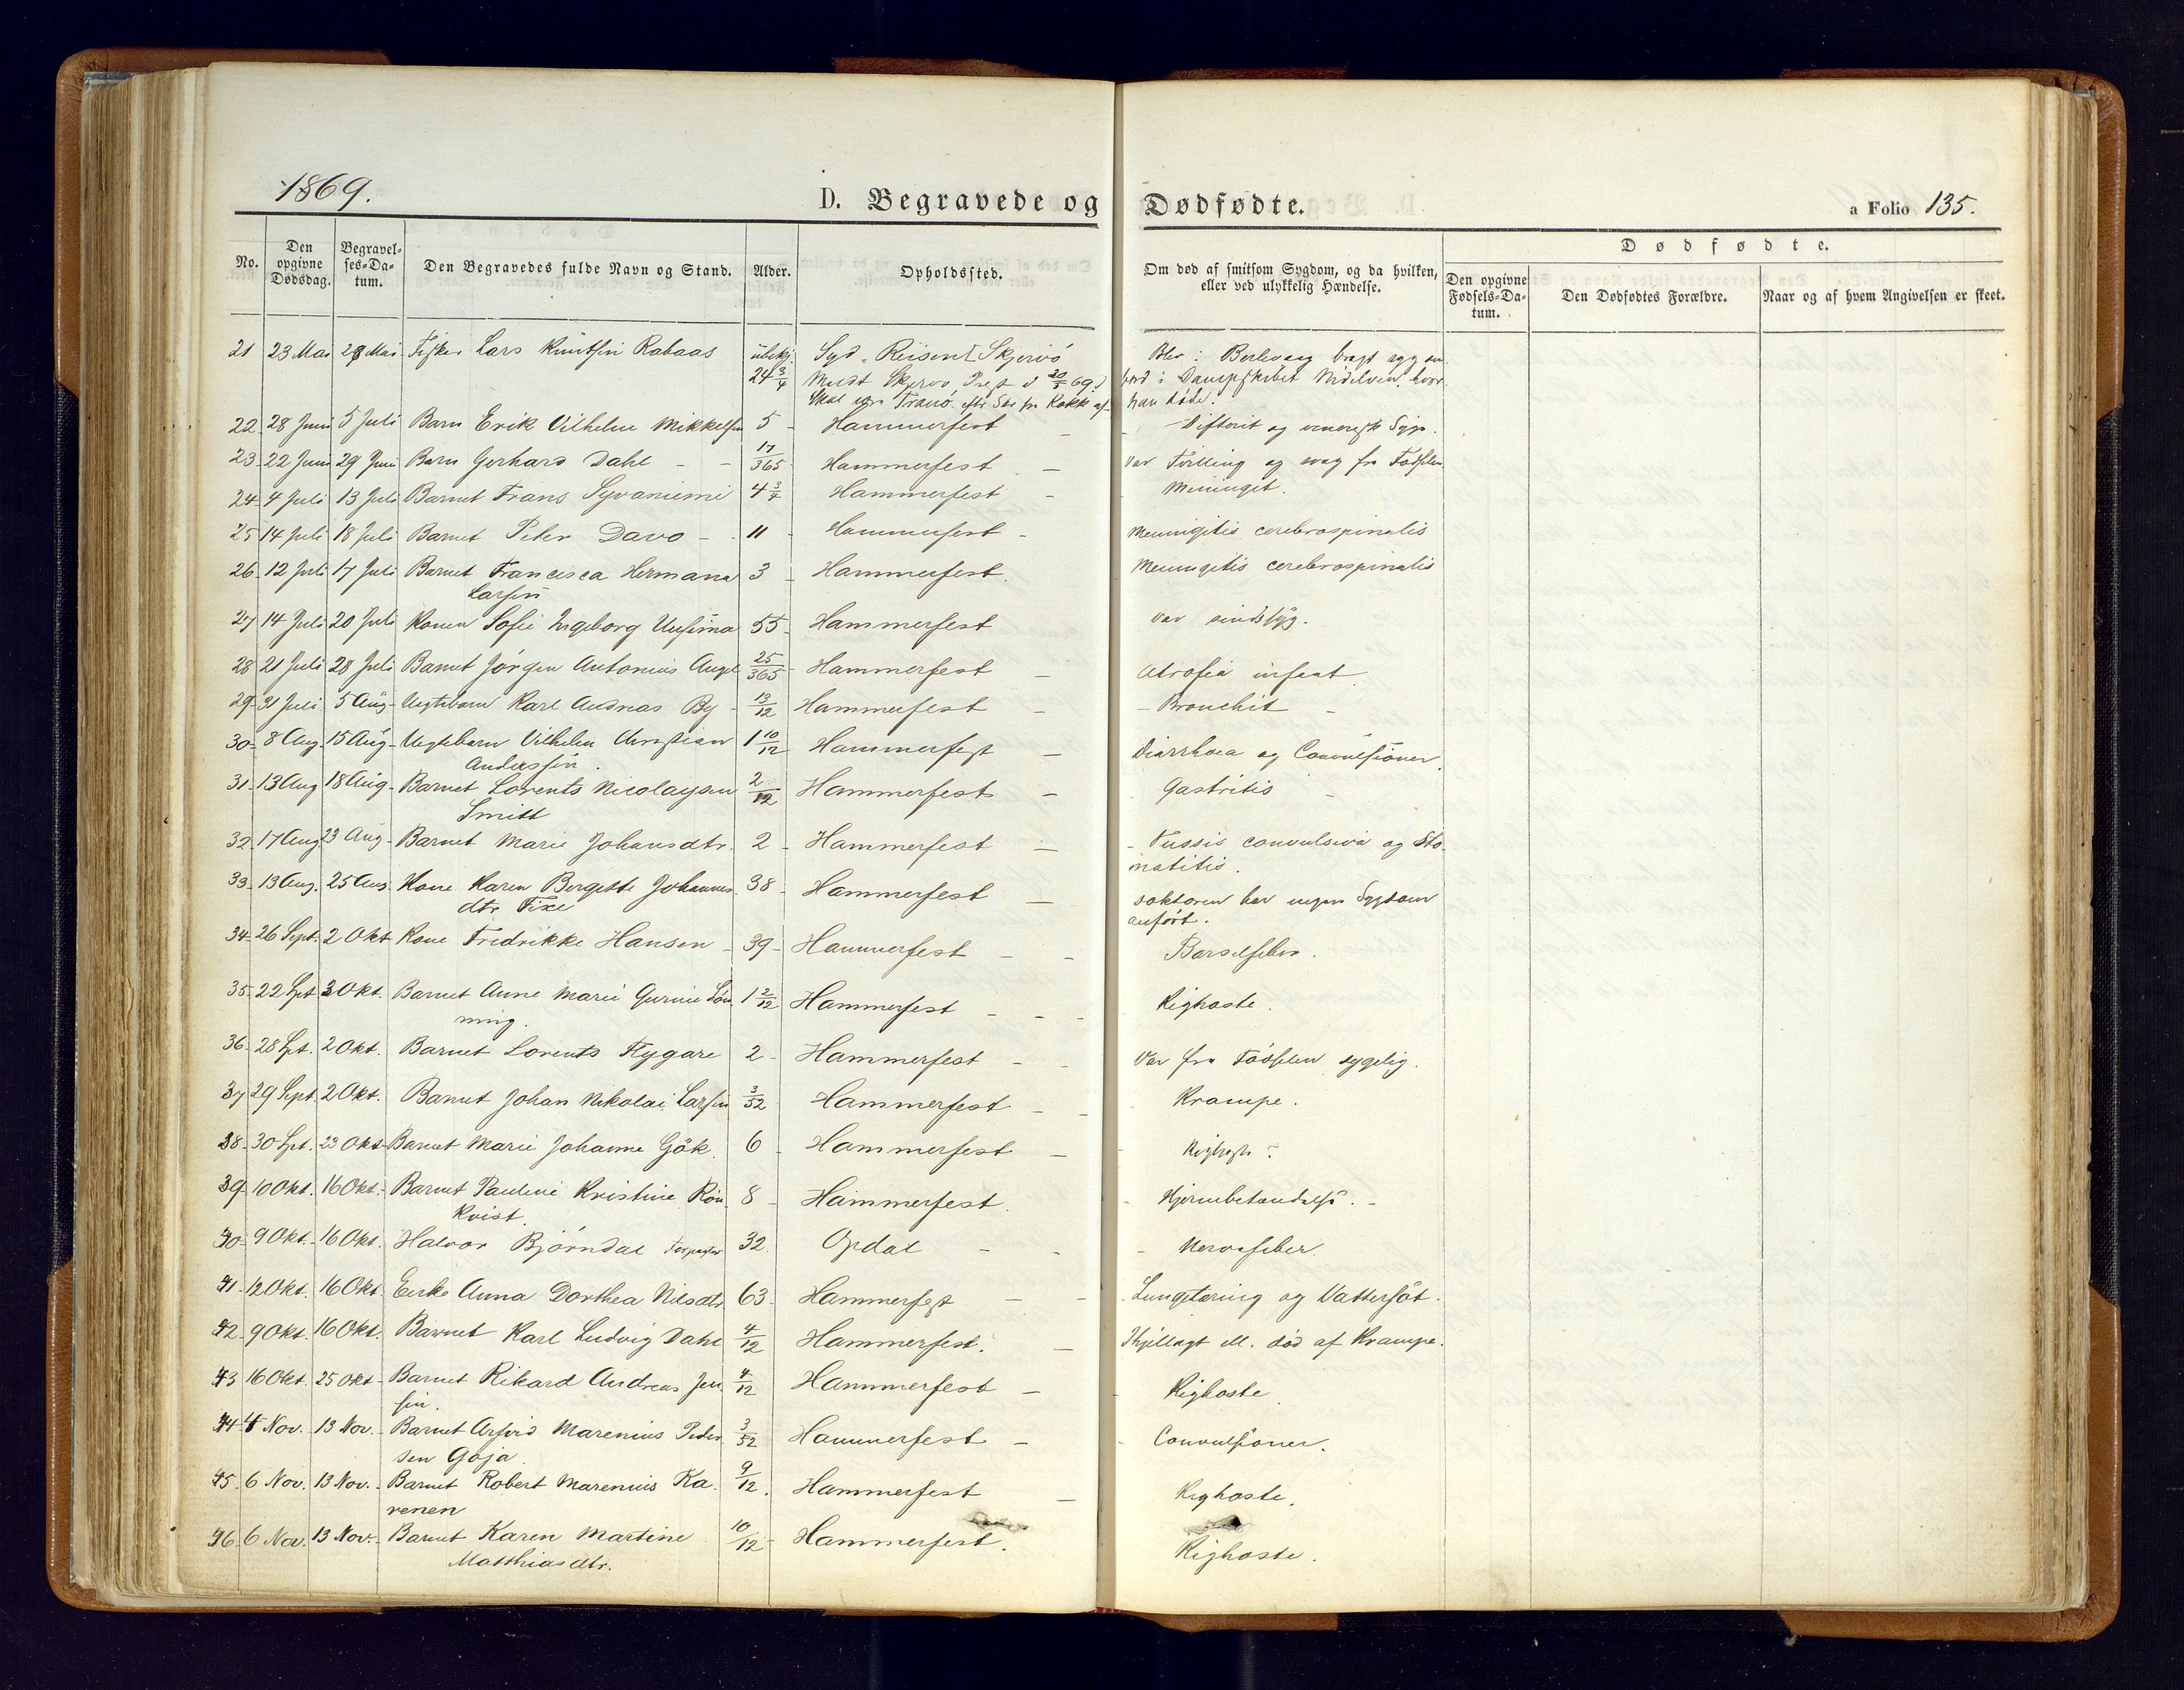 1869.
D. Begravede og Dødfødte.
a Folio 135.
No.
Den opgivne Dødsdag.
Begravelses-Datum.
Den Begravedes fulde Navn og Stand.
Alder.
Opholdssted.
Om død af smitsom Sygdom, og da hvilken, eller ved ulykkelig Hændelse.
Dødfødte.
Den opgivne Fødsels-Datum.
Den Dødfødtes Forældre.
Naar og af hvem Angivelsen er skeet.
21 23 Mai 28 Mai Fisker Lars Knutsen Rabaas ubekj. Syd-Reisen Skjervö Blev i Berlevaag bragt syg om
24 3/4 Meldt Skjervö Prest d 69) bord i Dampskibet Nidelven, hvor
Tranö han döde.
22 28 Juni 5 Juli Barn Erik Vilhelm Mikkelsen 5 - Hammerfest - Difterit og venerisk Syge.
23 22 Juni 29 Juni Barn Gerhard Dahl - - 17/365 Hammerfest - var Tvilling og svag fra Födselen
24 4 Juli 13 Juli Barnet Frans Syvaniemi 4 3/4 Hammerfest - Meninget.
25 14 Juli 18 Juli Barnet Peter Davo - 11 - Hammerfest - Meningitis cerebrospinalis
26 12 Juli 17 Juli Barnet Francisca Hermana 3 - Hammerfest. Meningitis cerebrospinalis
Larsen
27 14 Juli 20 Juli Konen Sofie Ingeborg Uusima 55 - Hammerfest var sindssyg.
28 21 Juli 28 Juli Barnet Jörgen Antonius Angel 25/365 - Hammerfest - Atrofia infant
29 31 Juli 5 Aug - Uegtebarn Karl Andreas By - 13/12 Hammerfest - - Bronchit -
30 8 Aug. 15 Aug - Uegtebarn Vilhelm Christian 1 10/12 Hammerfest - Diarrhoea og Convulsioner.
Anderssen.
31 13 Aug 18 Aug - Barnet Lorents Nicolaysen 2/12 Hammerfest - Gastritis -
Smitt
32 17 Aug 23 Aug - Barnet Marie Johansdtr. 2 - Hammerfest - - Tussis convulsiva og Sto-
matitis.
33 13 Aug. 25 Aug. Kone Karen Bergitte Johannes 38 - Hammerfest - doktoren har ingen Sygdom
dtr Fixe anfört.
34 26 Sept. 2 Okt Kone Fredrikke Hansen - 39 - Hammerfest - - Barselfeber.
35 22 Spt 3 Okt. Barnet Anne Marie Gurine Lön 1 2/12 Hammerfest - - - Kighoste.
ning.
36 28 Spt. 2 Okt. Barnet Lorents Flygare 2 - Hammerfest - - Var fra Födselen sygelig.
37 29 Sept. 2 Okt. Barnet Johan Nikolai Larsen 3/52 Hammerfest - - Krampe.
38 30 Spt. 23 Okt - Barnet Marie Johanne Gök. 6 - Hammerfest - Kighoste
39 10 Okt. 16 Okt. - Barnet Pauline Kristine Rön 8 - Hammerfest. - Hjernebetændelse. -
kvist.
40 9 Okt. - 16 Okt. Halvor Björndal 32. Opdal - - - Nervefeber.
41 12 Okt. 16 Okt. Enke Anna Dorthea Nilsdtr 63 - Hammerfest - - Lungetæring og Vattersot.
42 9 Okt. 16 Okt. Barnet Karl Ludvig Dahl 4/12 Hammerfest. - Ihjellagt ell. död af Krampe.
43 16 Okt. 25 Okt - Barnet Rikard Andreas Jen 4/12 Hammerfest - - Kighoste
sen.
44 4 Nov. 13 Nov. - Barnet Marenius Peder 3/52 Hammerfest - - Convulsioner.
sen Goja.
45 6 Nov. 13 Nov. - Barnet Robert Marenius Ka- 9/12. Hammerfest - Kighoste.
renen
46 6 Nov. 13 Nov. - Barnet Karen Martine 10/12 - Hammerfest. Kighoste.
Matthiasdtr.